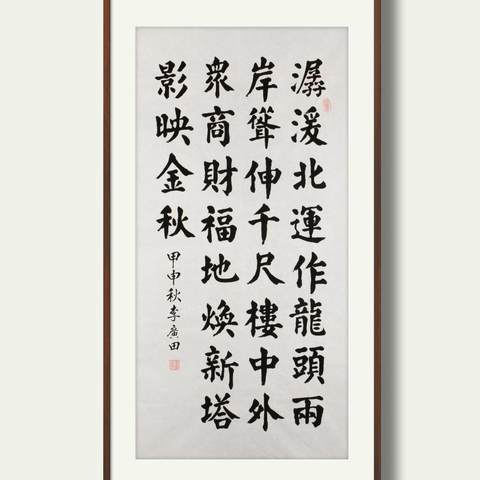 潺湲北運作龍頭兩
岸聳伸千尺樓中外
衆商財福地煥新塔
影映金秋
甲申秋李廣田